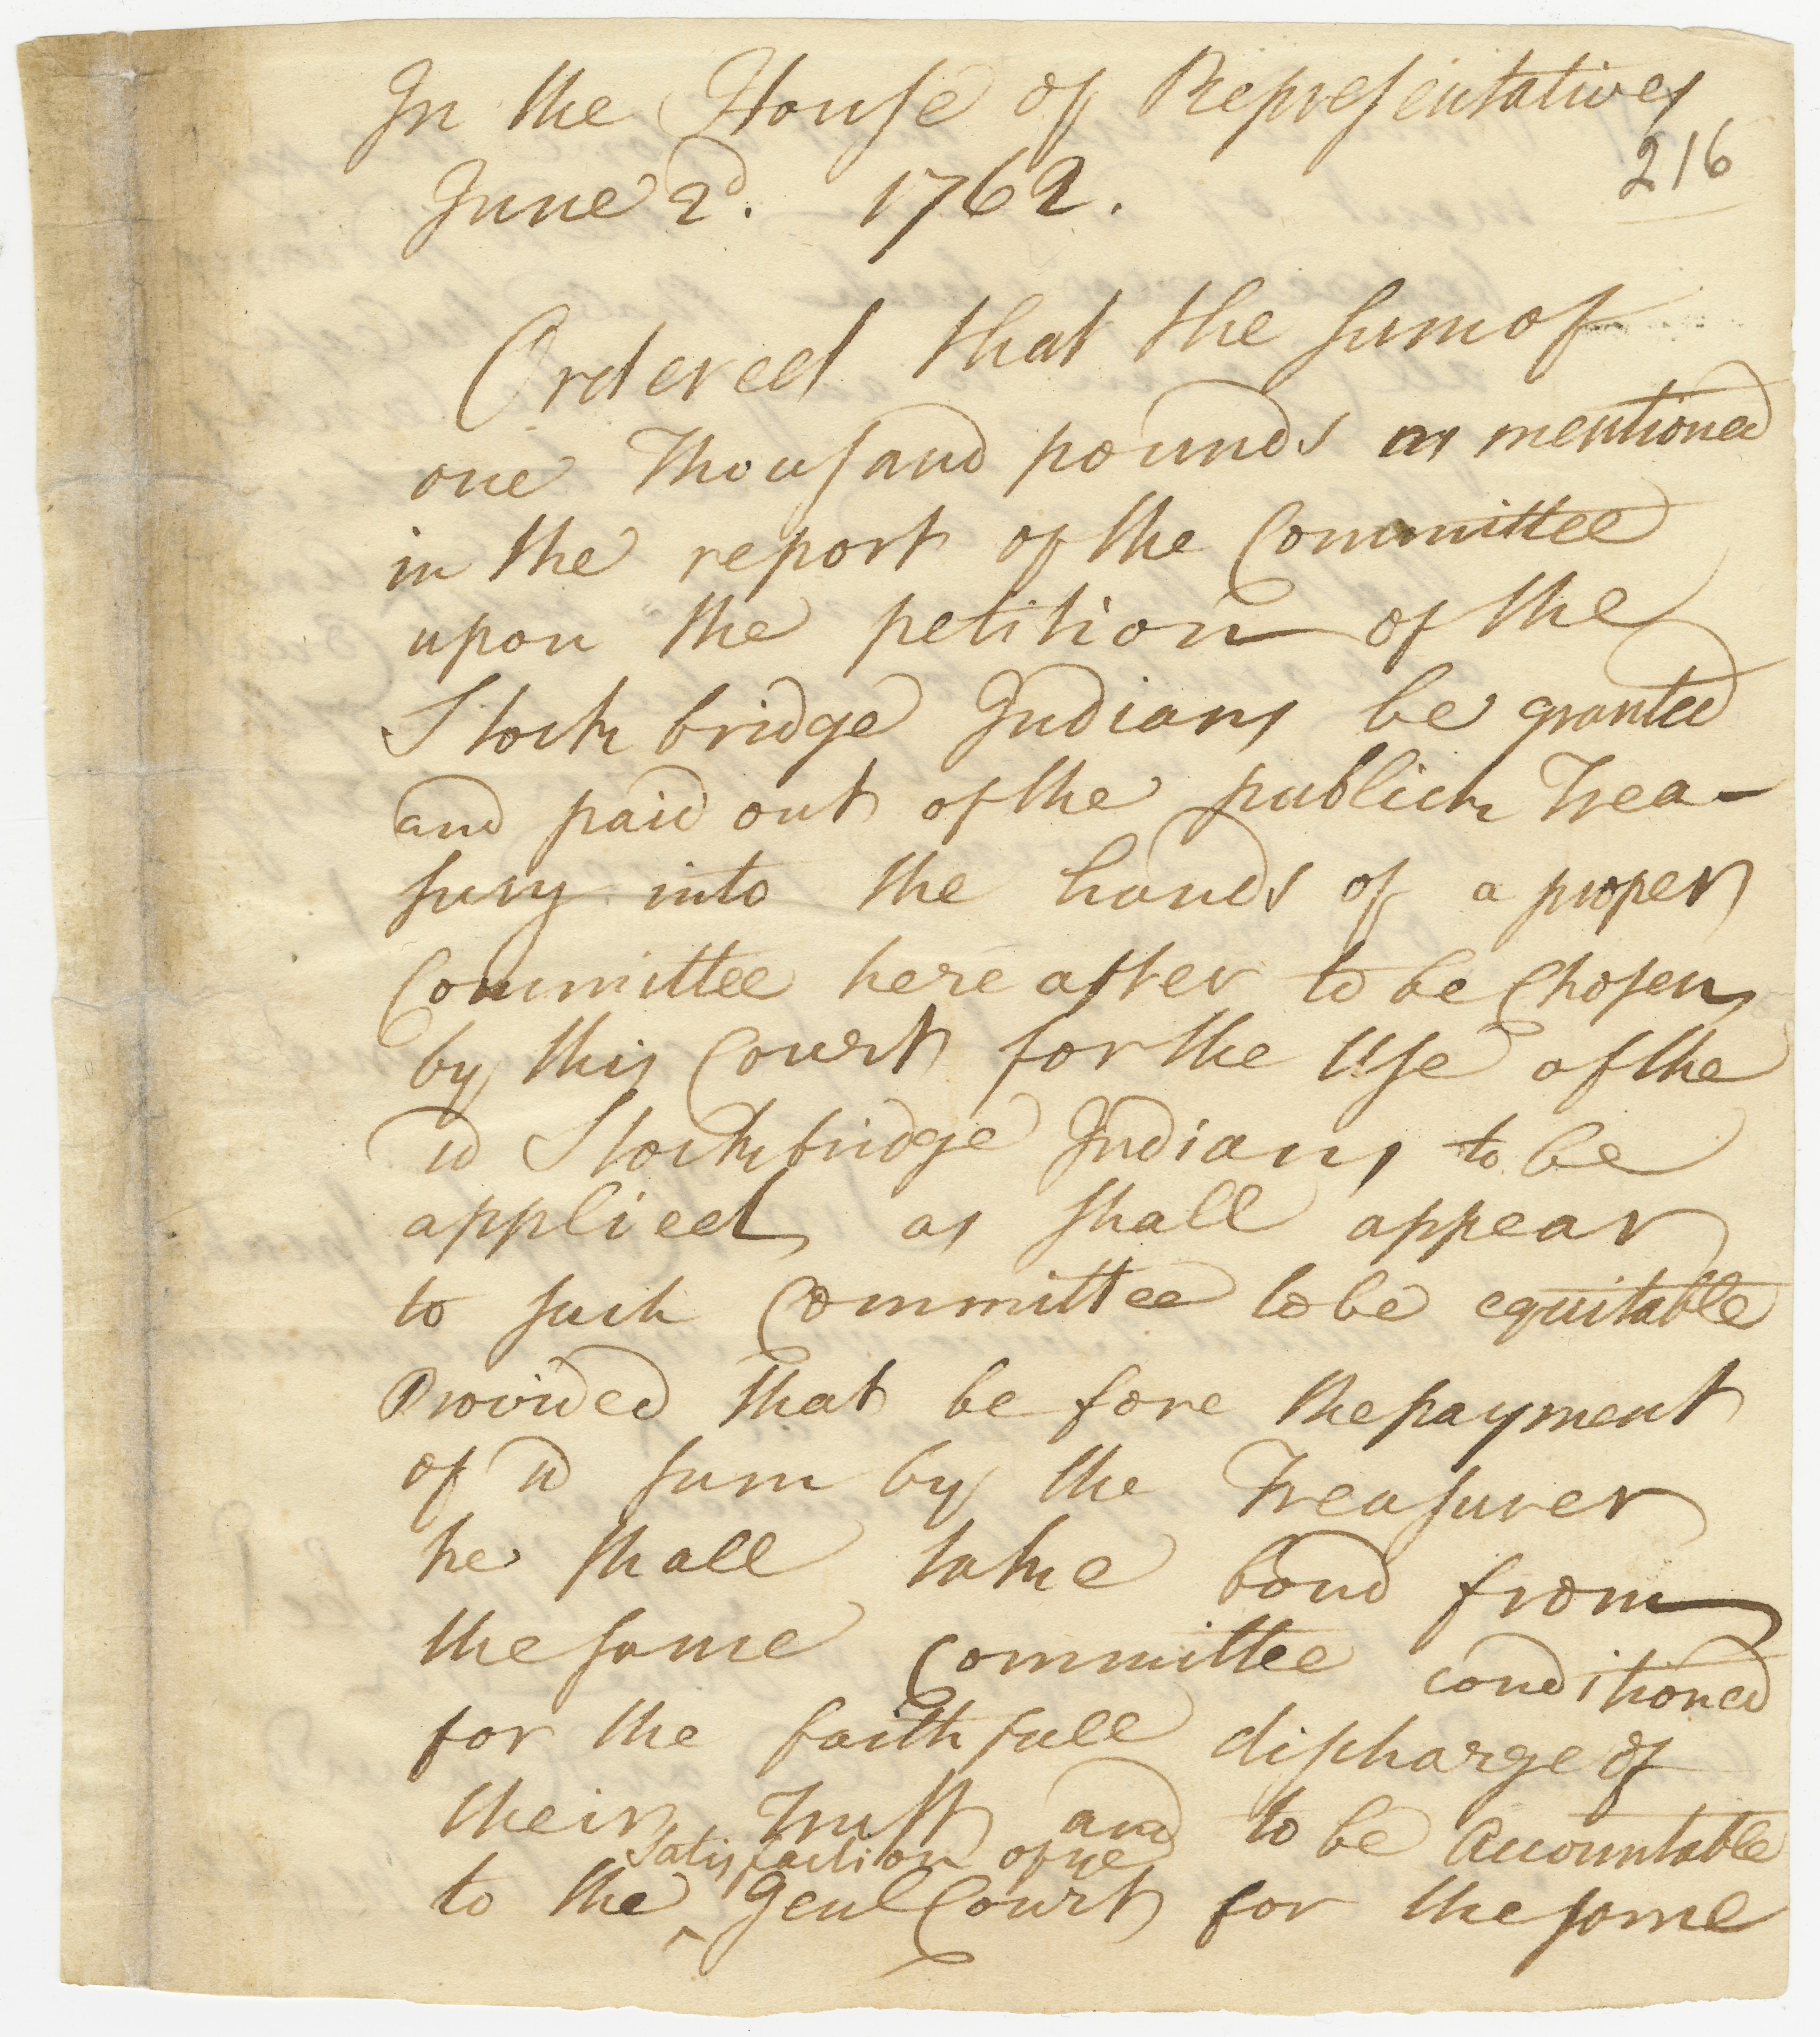 In the House of Representatives
216
June 2d. 1762.
Ordered that the sum of
one Thousand pounds as mentioned
in the report of the Committee
upon the petition of the
Stockbridge Indians be granted
and paid out of the publick Trea-
sury into the hands of a proper
Committee here after to be Chosen
by this Court for the Use of the
sd Stockbridge Indians to be
applied as shall appear
to such Committee to be equitable
Provided that be fore the payment
of sd sum by the Treasurer
he shall take bond from
the same Committee conditioned
for the faithfull discharge of
their Trust and to be Accountable
Satisfaction of ye
to the ^ Genl Court for the same